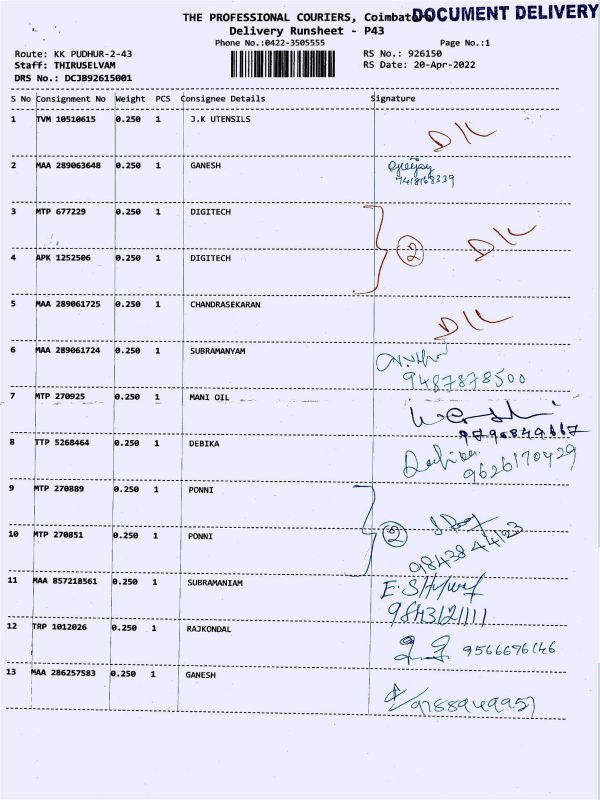 THE PROFESSIONAL COURIERS, Coimbato
DOCUMENT DELIVERY
Delivery Runsheet - P43
Phone No.:0422-3505555 Page No.:1
Route: KK PUDHUR-2-43 RS No.: 926150
Staff: THIRUSELVAM RS Date: 20-Apr-2022
DRS No.: DCJB92615001
S No Consignment No Weight PCS Consignee Details Signature
1 TVM 10510615 0.250 1 J.K UTENSILS D/L
2 MAA 289063648 0.250 1 GANESH
7418168339
3 MTP 677229 0.250 1 DIGITECH
2 D/L
4 APK 1252506 0.250 1 DIGITECH
5 MAA 289061725 0.250 1 CHANDRASEKARAN D/L
6 MAA 289061724 0.250 1 SUBRAMANYAM
9487878500
7 MTP 270925 0.250 1 MANI OIL
9790849667
8 TTP 5268464 0.250 1 DEBIKA
9626170429
9 MTP 270889 0.250 1 PONNI
2
10 MTP 270851 0.250 1 PONNI
11 MAA 857218561 0.250 1 SUBRAMANIAM
9843121111
12 TRP 1012026 0.250 1 RAJKONDAL 9566696146
13 MAA 286257583 0.250 1 GANESH
9788949957